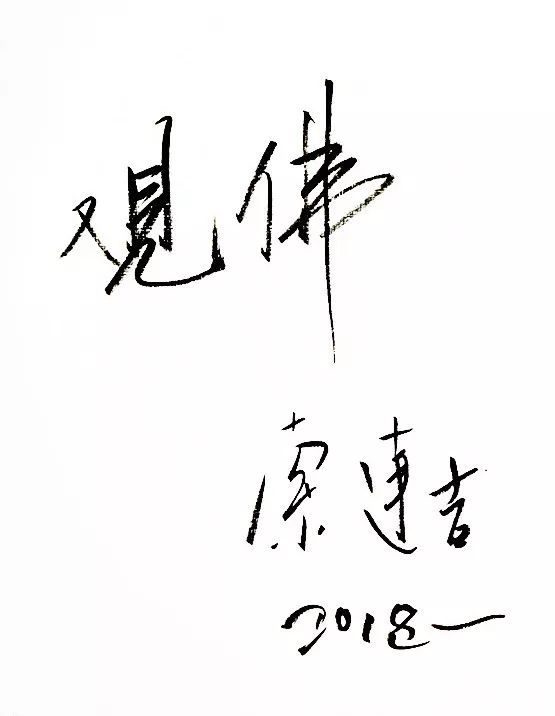 观佛
索连吉
2018